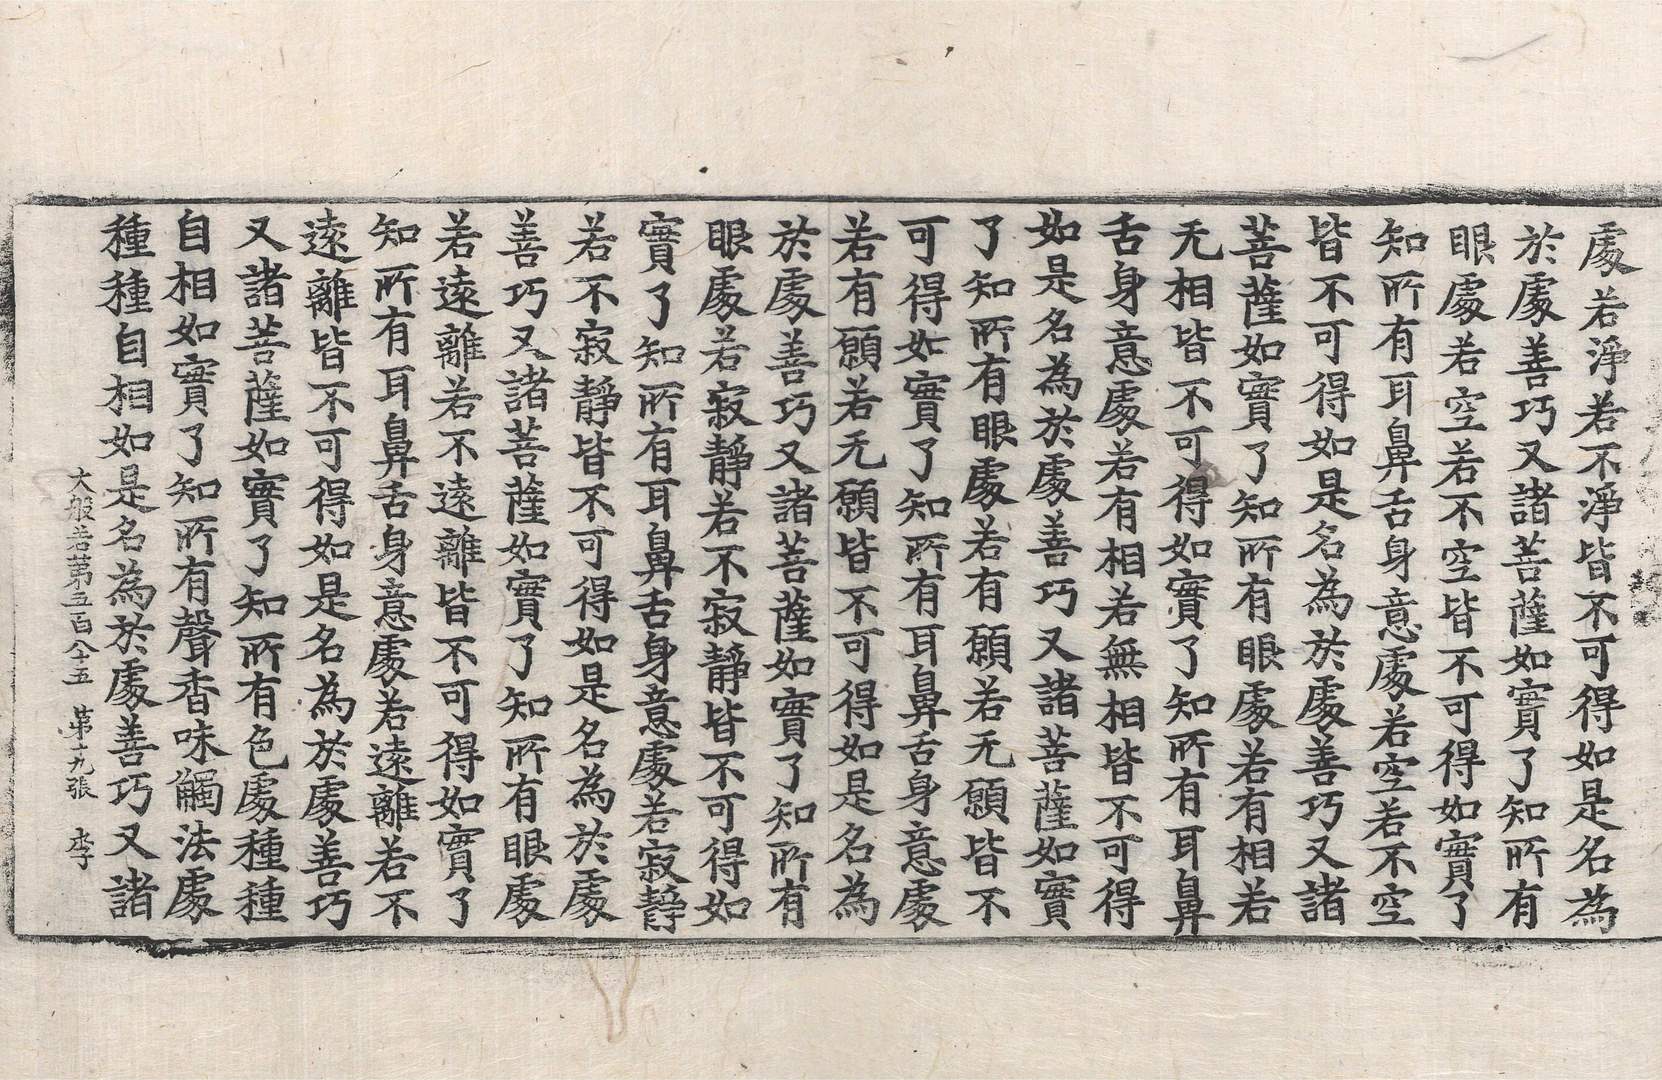 處若淨若不淨皆不可得如是名為
於處善巧又諸菩薩如實了知所有
眼處若空若不空皆不可得如實了
知所有耳鼻舌身意處若空若不空
皆不可得如是名為於處善巧又諸
菩薩如實了知所有眼處若有相若
无相皆不可得如實了知所有耳鼻
舌身意處若有相若無相皆不可得
如是名為於處善巧又諸菩薩如實
了知所有眼處若有願若无願皆不
可得如實了知所有耳鼻舌身意處
若有願若无願皆不可得如是名為
於處善巧又諸菩薩如實了知所有
眼處若寂靜若不寂靜皆不可得如
實了知所有耳鼻舌身意處若寂靜
若不寂靜皆不可得如是名為於處
善巧又諸菩薩如實了知所有眼處
若遠離若不遠離皆不可得如實了
知所有耳鼻舌身意處若遠離若不
遠離皆不可得如是名為於處善巧
又諸菩薩如實了知所有色處種種
自相如實了知所有聲香味觸法處
種種自相如是名為於處善巧又諸
大般若第五百八十五 第十九張 李